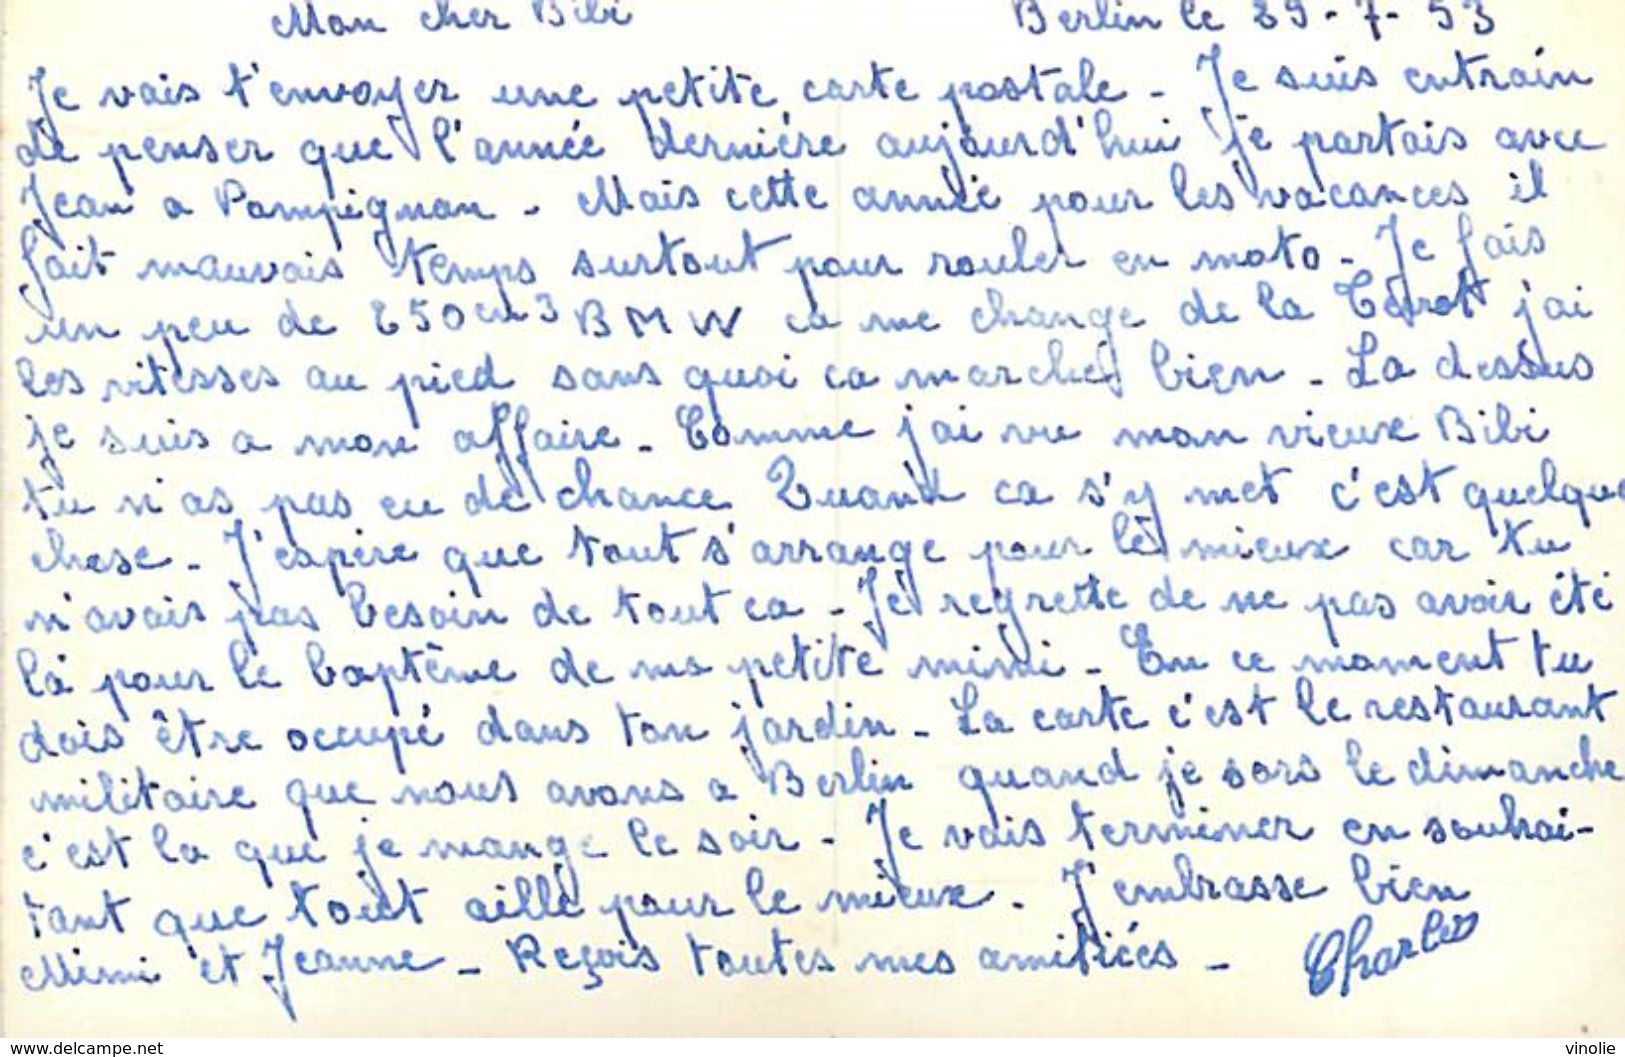 Mon cher Bibi Berlin le 29-7-53
Je vais t'envoyer une petite carte postale - Je suis entrain
de penser que l'année derniére aujourd'hui je partais avec
Jean a Pompignan - Mais cette année pour les vacances il
fait mauvais temps surtout pour rouler en moto - Je fais
un peu de 250 cm3 BMW ca me change de la Terrot j'ai
les vitesses au pied sans quoi ca marche bien - La dessus
je suis a mon affaire - Comme j'ai vu mon vieux Bibi
tu n'as pas eu de chance Quand ca s'y met c'est quelque
chose - J'espère que tout s'arrange pour le mieux car tu
n'avais pas besoin de tout ca - Je regrette de ne pas avoir été
là pour le baptême de ma petite mimi - En ce moment tu
dois être occupé dans ton jardin - La carte c'est le restaurant
militaire que nous avons a Berlin quand je sors le dimanche
c'est la que je mange le soir - Je vais terminer en souhai-
tant que tout aille pour le mieux - J'embrasse bien
Mimi et Jeanne - Reçois toutes mes amitiées -
Charles
www.delcampe.net vinolie